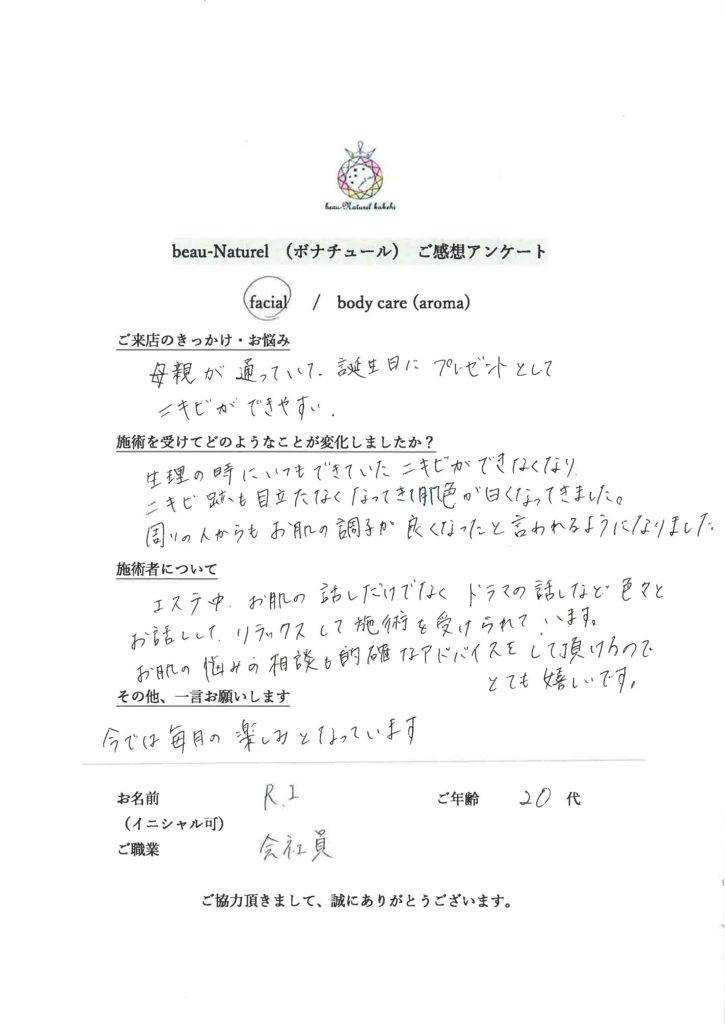 beau-Naturel kakehi
beau-Naturel （ボナチュール） ご感想アンケート
facial / body care (aroma)
ご来店のきっかけ・お悩み
母親が通っていて、誕生日にプレゼントとして
ニキビができやすい．
施術を受けてどのようなことが変化しましたか？
生理の時にいつもできていたニキビができなくなり
ニキビ跡も目立たなくなってきて肌色が白くなってきました。
周りの人からもお肌の調子が良くなったと言われるようになりました。
施術者について
エステ中、お肌の話しだけでなくドラマの話しなど色々と
お話しして、リラックスして施術を受けられています。
お肌の悩みの相談も的確なアドバイスをして頂けるので
とても嬉しいです。
その他、一言お願いします
今では毎月の楽しみとなっています
お名前 R.I ご年齢 20 代
（イニシャル可）
ご職業 会社員
ご協力頂きまして、誠にありがとうございます。